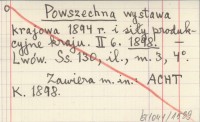 Powszechna wystawa
krajowa 1894 r. i siły produk-
cyjne kraju. II 6. 1898. —
Lwów. Ss. 130, il., m. 3, 4°.
Zawiera m. in: ACHT
K. 1898.